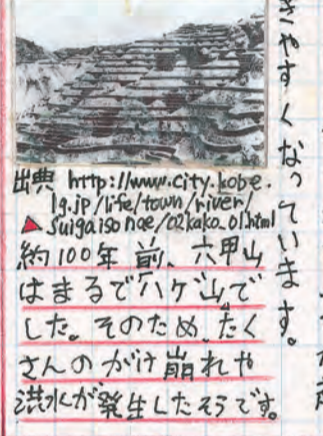 きやすくなっています。
出典 http://www.city.kobe.
lg.jp/life/town/river/
suigaisonae/02kako_01.html
約100年前、六甲山
はまるで「ハゲ山」で
した。そのため、たく
さんのがけ崩れや
洪水が発生したそうです。